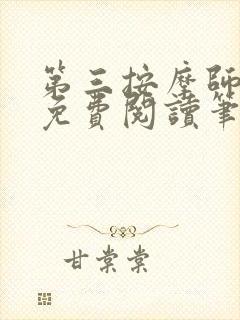 第三按摩師
免費閱讀筆
甘棠棠